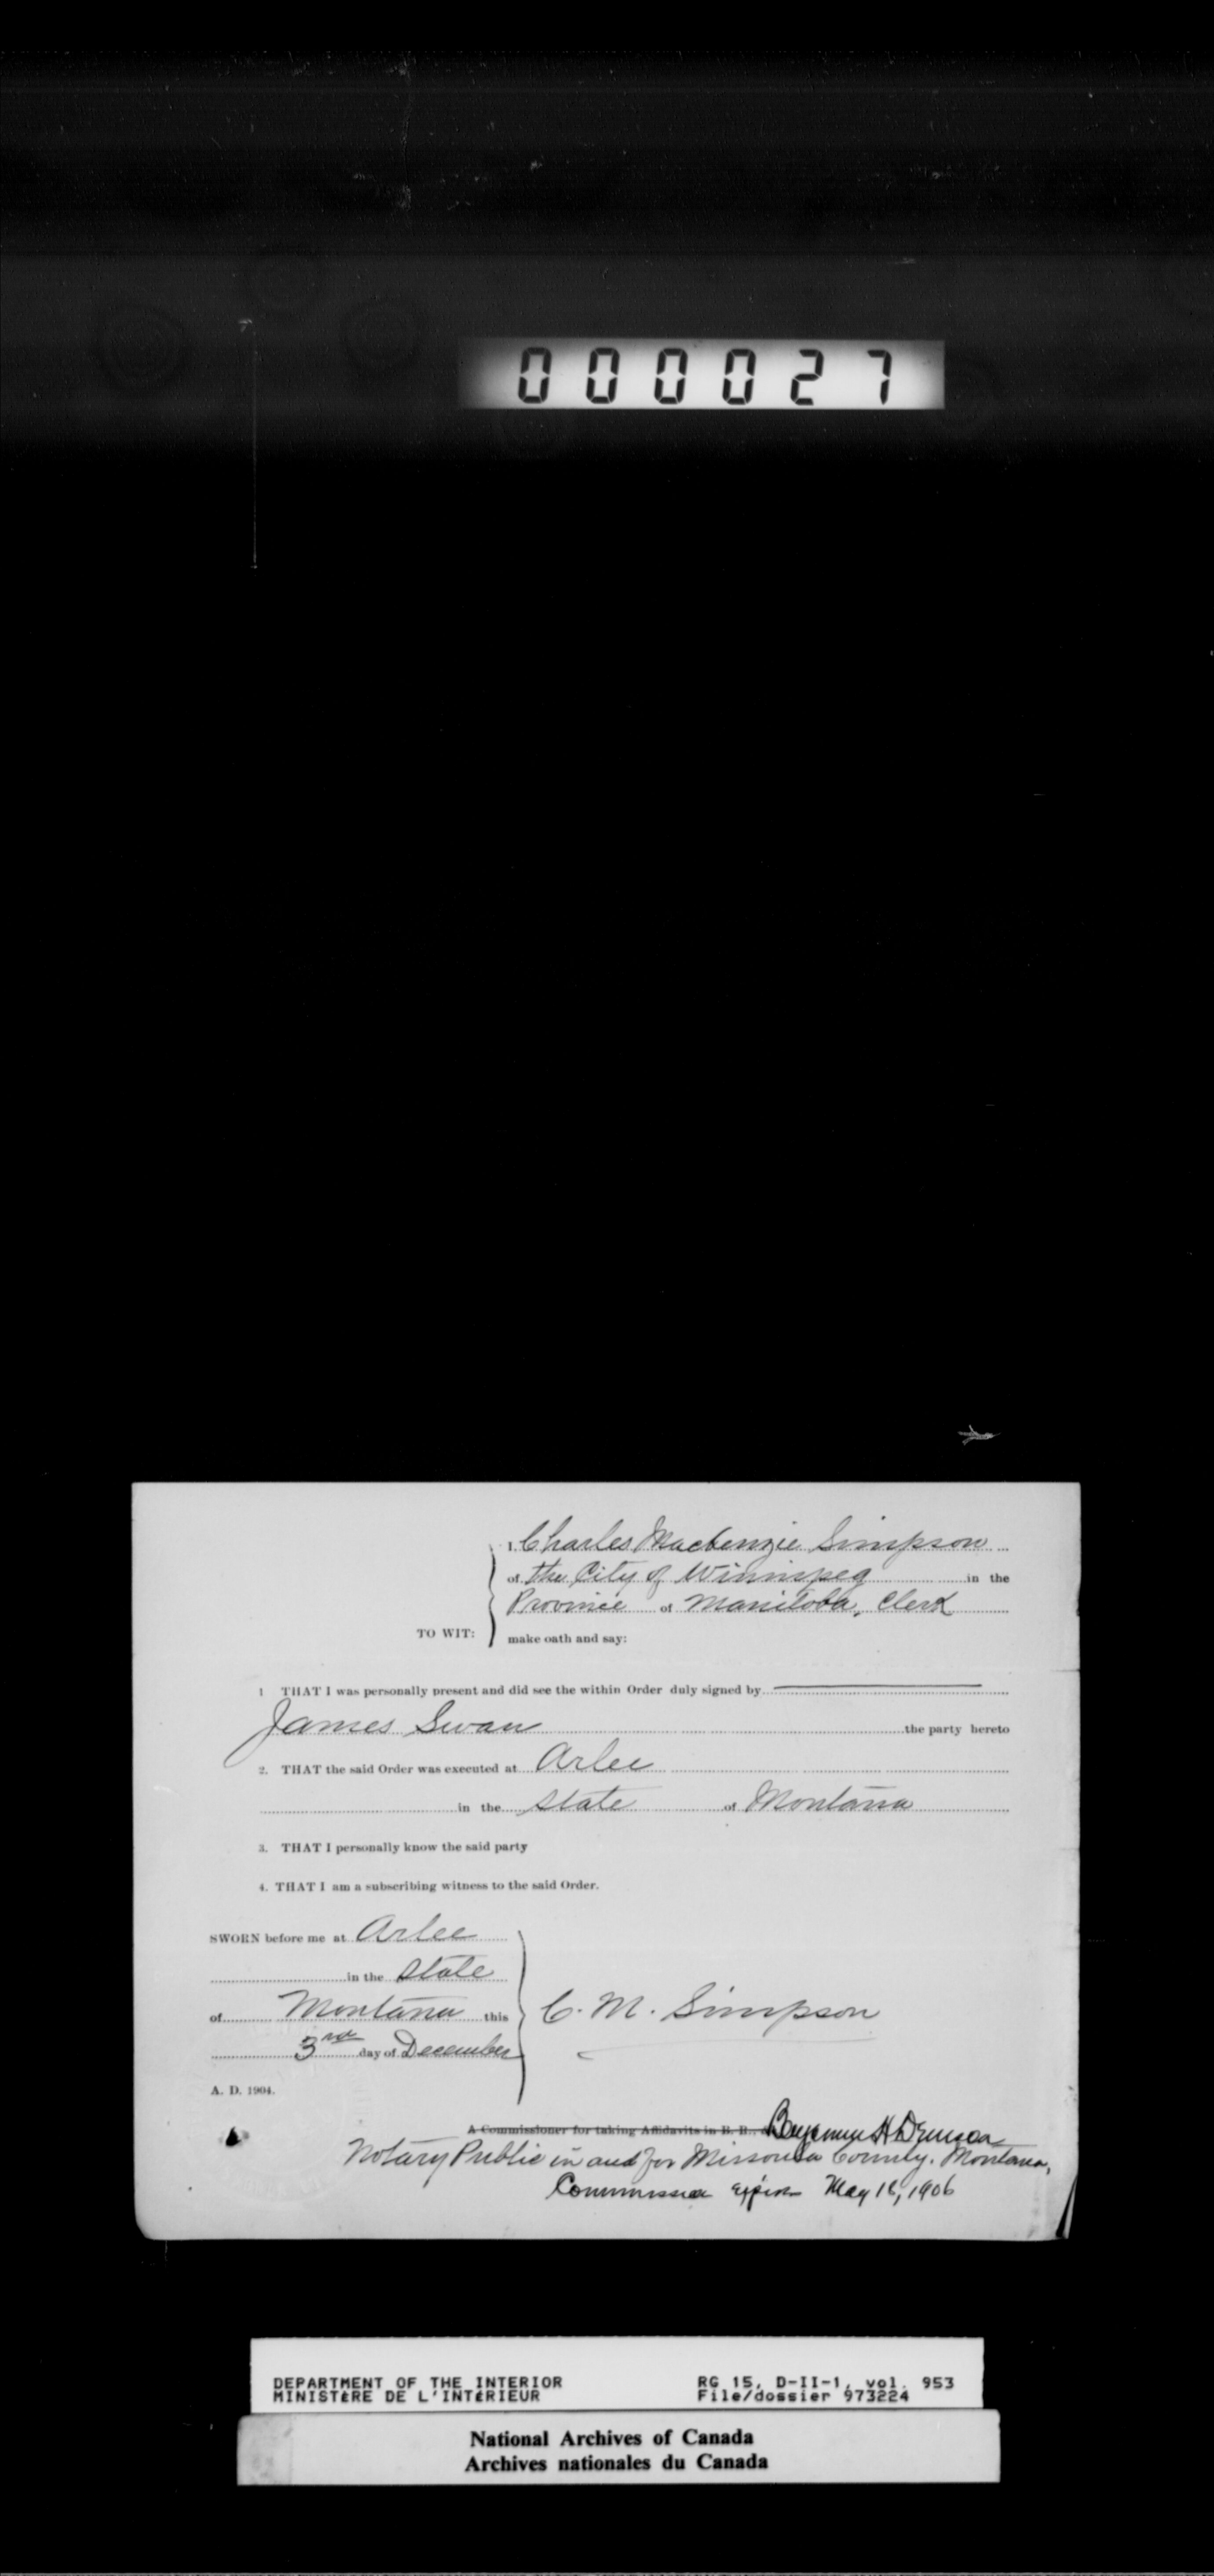 000027
I, Charles Mackenzie Simpson
of the City of Winnipeg in the
Province of Manitoba, Clerk
TO WIT: make oath and say:
1 THAT I was personally present and did see the within Order duly signed by
James Swan the party hereto
2. THAT the said Order was executed at Arlee
in the State of Montana
3. THAT I personally know the said party
4. THAT I am a subscribing witness to the said Order.
SWORN before me at Arlee
in the State
of Montana this
3rd day of December
C. M. Simpson
A. D. 1904.
A Commissioner for taking Affidavits in B. R., Benjamin H
Notary Public in and for Missoula County, Montana,
Commission Expires May 18, 1906
DEPARTMENT OF THE INTERIOR RG 15, D-II-1, vol. 953
MINISTÈRE DE L'INTÉRIEUR File/dossier 973224
National Archives of Canada
Archives nationales du Canada